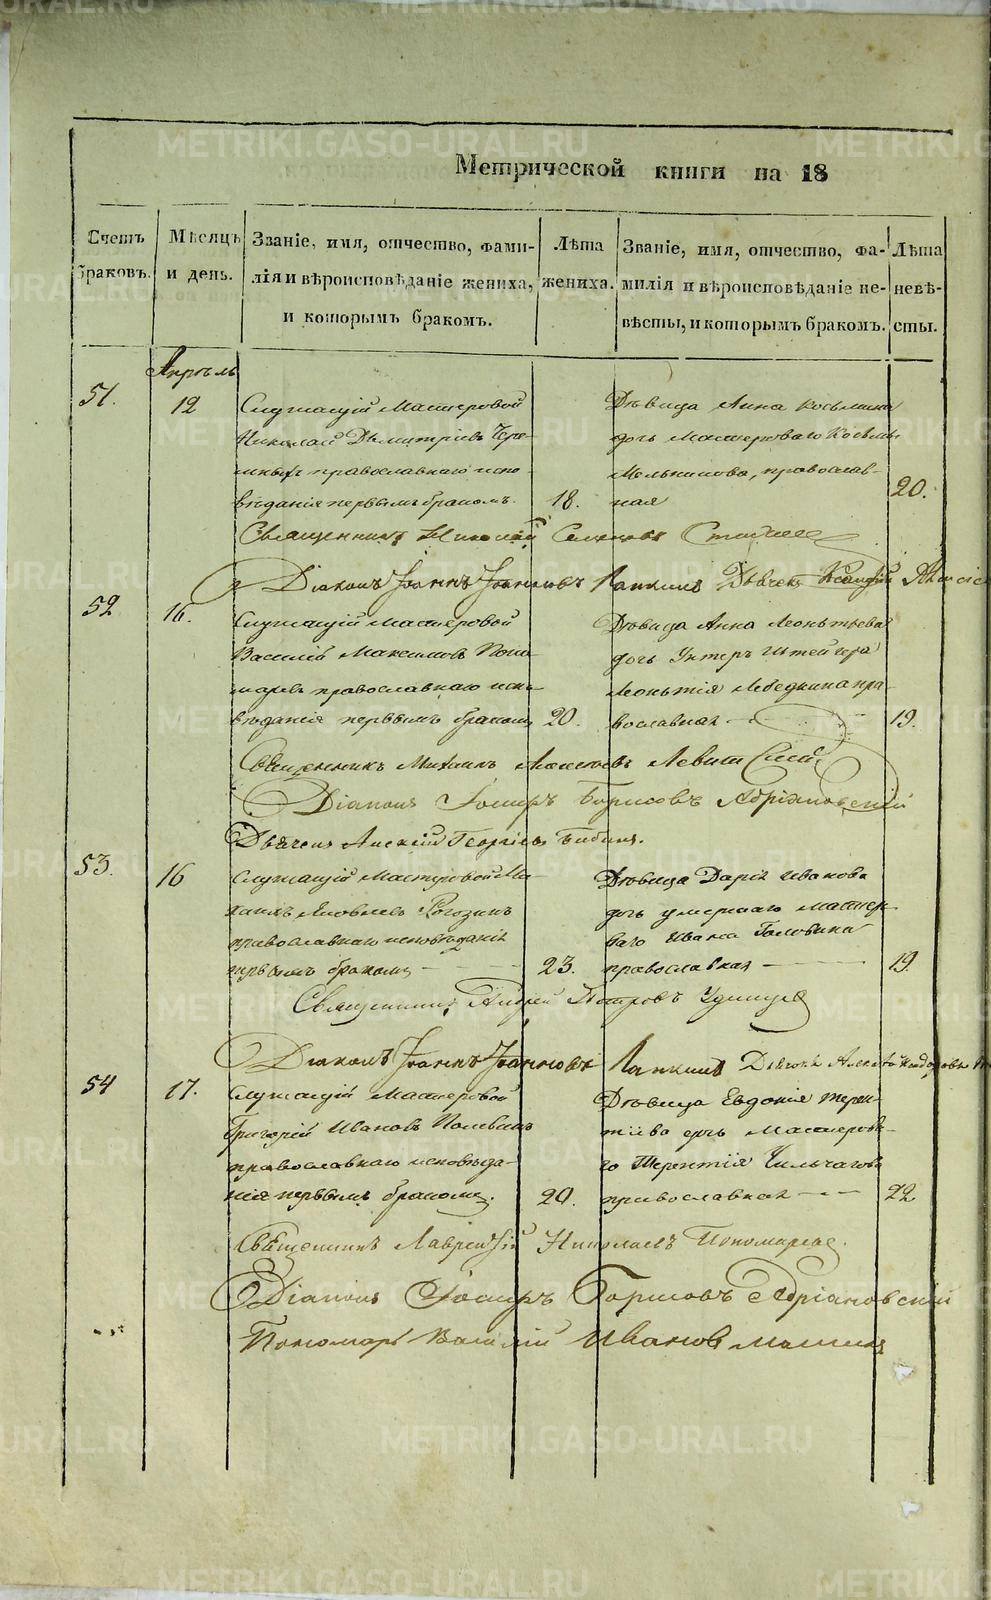 Метрической книги на 18
Счетъ браковъ.
Мѣсяцъ и день.
Званіе, имя, отчество, фами-
лія и вѣроисповѣданіе жениха,
и которымъ бракомъ.
Лѣта
жениха.
Званіе, имя, отчество, фа-
милія и вѣроисповѣданіе не-
вѣсты, и которымъ бракомъ.
Лѣта
невѣ-
сты.
Апрѣль
51.
12
Служащій Мастеровой
Николай Дмитріевъ Чере-
мныхъ православнаго испо-
вѣданія первымъ бракомъ.
18.
Дѣвица Анна Косьмина
дочь Мастероваго Косьмы
Мельникова, православ-
ная
20.
Священникъ Николай
Діаконъ Іоаннъ Іоанновъ Лапкинъ Дьячекъ
52
16.
Служащій Мастеровой
Василій Максимовъ Поно-
маревъ православнаго испо-
вѣданія первымъ бракомъ
20.
Дѣвица Анна Леонтьева
дочь Унтеръ Штейгера
Леонтія Лебедкина пра-
вославная
19.
Священникъ Михаилъ Алексѣевъ Левит
Діаконъ Іосифъ Борисовъ Адріановскій
Дьячекъ Алексій Георгіевъ Бибинъ.
53.
16
Служащій Мастеровой Ми-
хаилъ Яковлевъ Рогозинъ
православнаго исповѣданія
первымъ бракомъ
23.
Дѣвица Дарія Иванова
дочь умершаго мастер-
ваго Ивана Головина
православная
19.
Священникъ Андрей Петровъ Удинцев
Діаконъ Іоаннъ Іоанновъ Лапкинъ Дьячекъ
54
17.
Служащій Мастеровой
Григорій Ивановъ Полевинъ
православнаго исповѣда-
нія первымъ бракомъ.
20.
Дѣвица Евдокія Терен-
тіева дочь Мастерова-
го Терентія Чильчагова
православная
22
Священникъ Лаврентій Николаевъ Пономаревъ.
Діаконъ Іосифъ Борисовъ Адріановскій
Пономарь Василій Иванов
METRIKI.GASO-URAL.RU